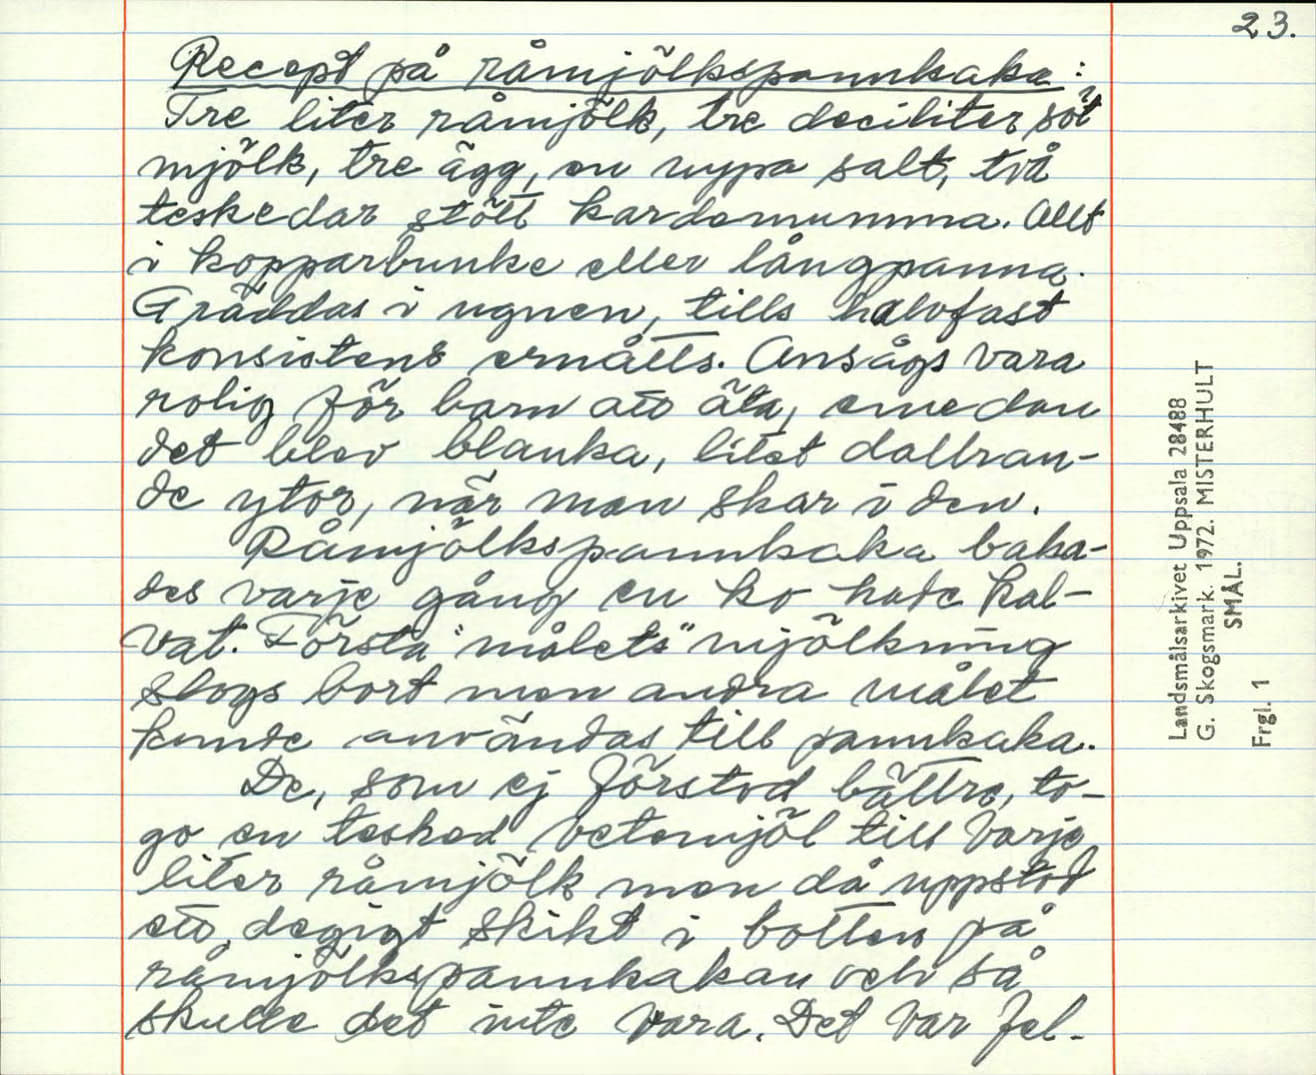 23.
Recept på råmjölkspannkaka:
Tre liter råmjölk, tre deciliter söt
mjölk, tre ägg, en nypa salt, två
teskedar stött kardemumma. Allt
i kopparbunke eller långpanna.
Gräddas i ugnen, tills halvfast
konsistens ernåtts. Ansågs vara
rolig för barn att äta, emedan
det blev blanka, litet dallran-
de ytor, när man skar i den.
Råmjölkspannkaka baka-
des varje gång en ko hade kal-
vat. Första "målets" mjölkning
slogs bort men andra målet
kunde användas till pannkaka.
De, som ej förstod bättre, to-
go en tesked vetemjöl till varje
liter råmjölk men då uppstod
ett degigt skikt i botten på
råmjölkspannkakan och så
skulle det inte vara. Det var fel-
Landsmålsarkivet Uppsala 28488
G. Skogsmark. 1972. MISTERHULT
SMÅL.
Frgl. 1